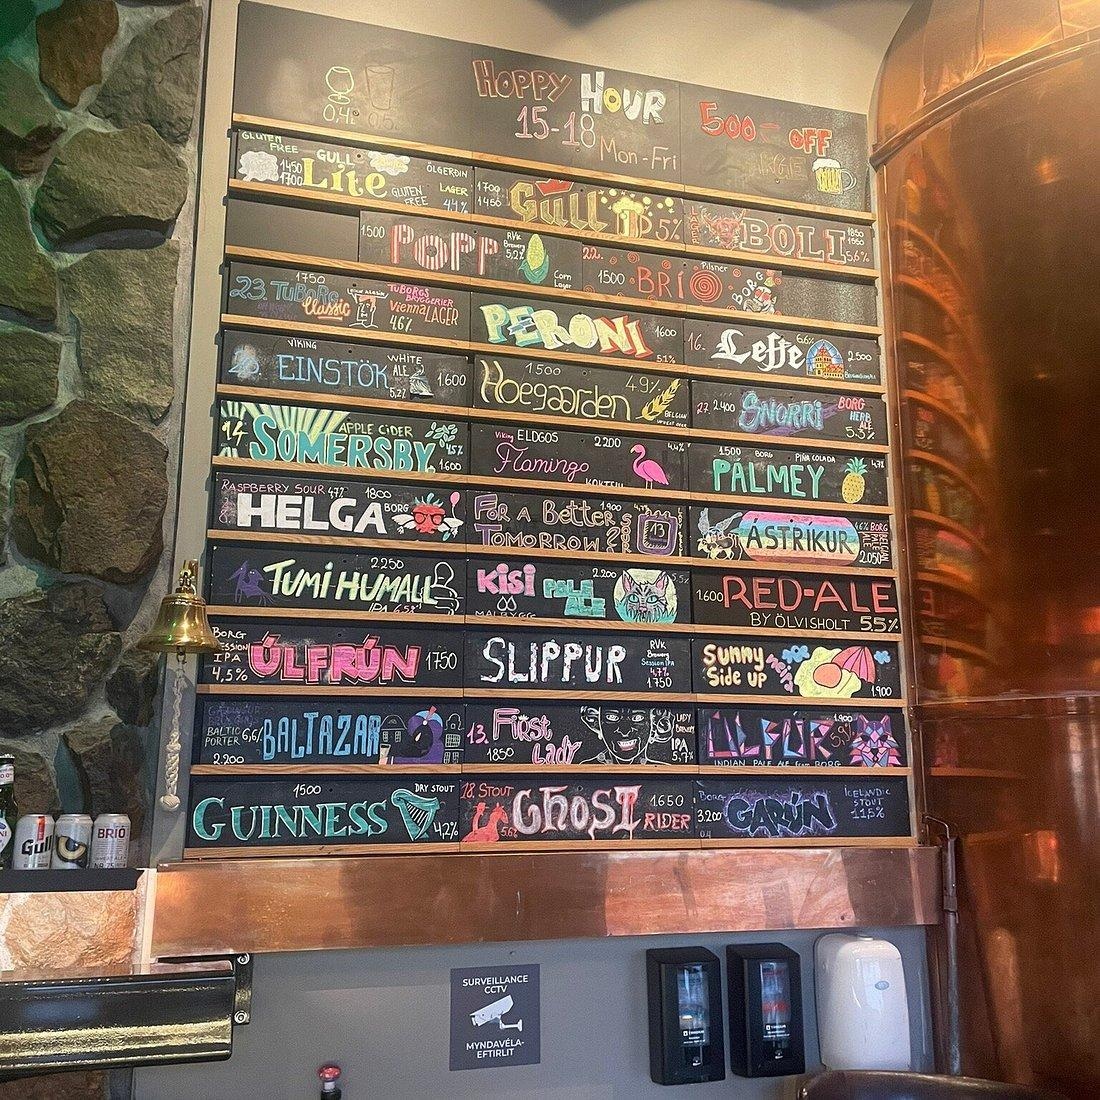 0,4L 0.5L
HOPPY HOUR
15-18 Mon-Fri
500 - OFF
GLUTEN FREE
1450
1700
GULL Lite
GLUTEN FREE
ÖLGERÐIN
LAGER
4,4%
1700
1450
GULL
5%
LAGER
BOLI
1850
5,6%
1.500
POPP
RVK Brewery
5,2%
Corn Lager
22.
1500
BRÍÓ
Pilsner
BORG
1750
23. TUBORG Classic
TUBORGS BRYGGERIER
Vienna LAGER
4.6%
PERONI
1600
5.1%
16.
Leffe
6.6%
2.500
VIKING
EINSTÖK
WHITE ALE
5,2%
1.600
1500
Hoegaarden
4.9%
BELGIAN
WHEAT BEER
27. 2.400
SNORRI
BORG
HERB ALE
5.3%
14.
SOMERSBY
APPLE CIDER
4,5%
1.600
Viking ELDGOS
2.200
4,4%
Flamingo
KOKTEIL
1.500
BORG
PIÑA COLADA
4,7%
PALMEY
RASPBERRY SOUR 4,7%
1800
HELGA
BORG
FOR A BETTER TOMORROW ?
1.900
SOUR
13
ÁSTRÍKUR
4.6% BORG
BELGIAN PALE ALE
2.050
2.250
TUMI HUMALL
IPA 6,5%
KISI PALE ALE
2.200
5,5%
MALBYGG
1.600
RED-ALE
BY ÖLVISHOLT 5.5%
BORG
SESSION IPA
4,5%
ÚLFRÚN
1750
SLIPPUR
RVK Brewery
Session IPA
4,7%
1.750
Sunny Side up
neipa
1.900
BALTIC PORTER 6,6%
2.200
BALTAZAR
13.
1850
First Lady
LADY BREWERY
IPA
5,7%
ÚLFUR
1.900
5,9%
INDIAN PALE ALE from BORG
1500
GUINNESS
DRY STOUT
4,2%
18. STOUT
5.6%
GHOST RIDER
1.650
BORG
3.200
0.4
GARÚN
ICELANDIC STOUT
11.5%
Gull
BRÍÓ
SURVEILLANCE
CCTV
MYNDAVÉLA-
EFTIRLIT